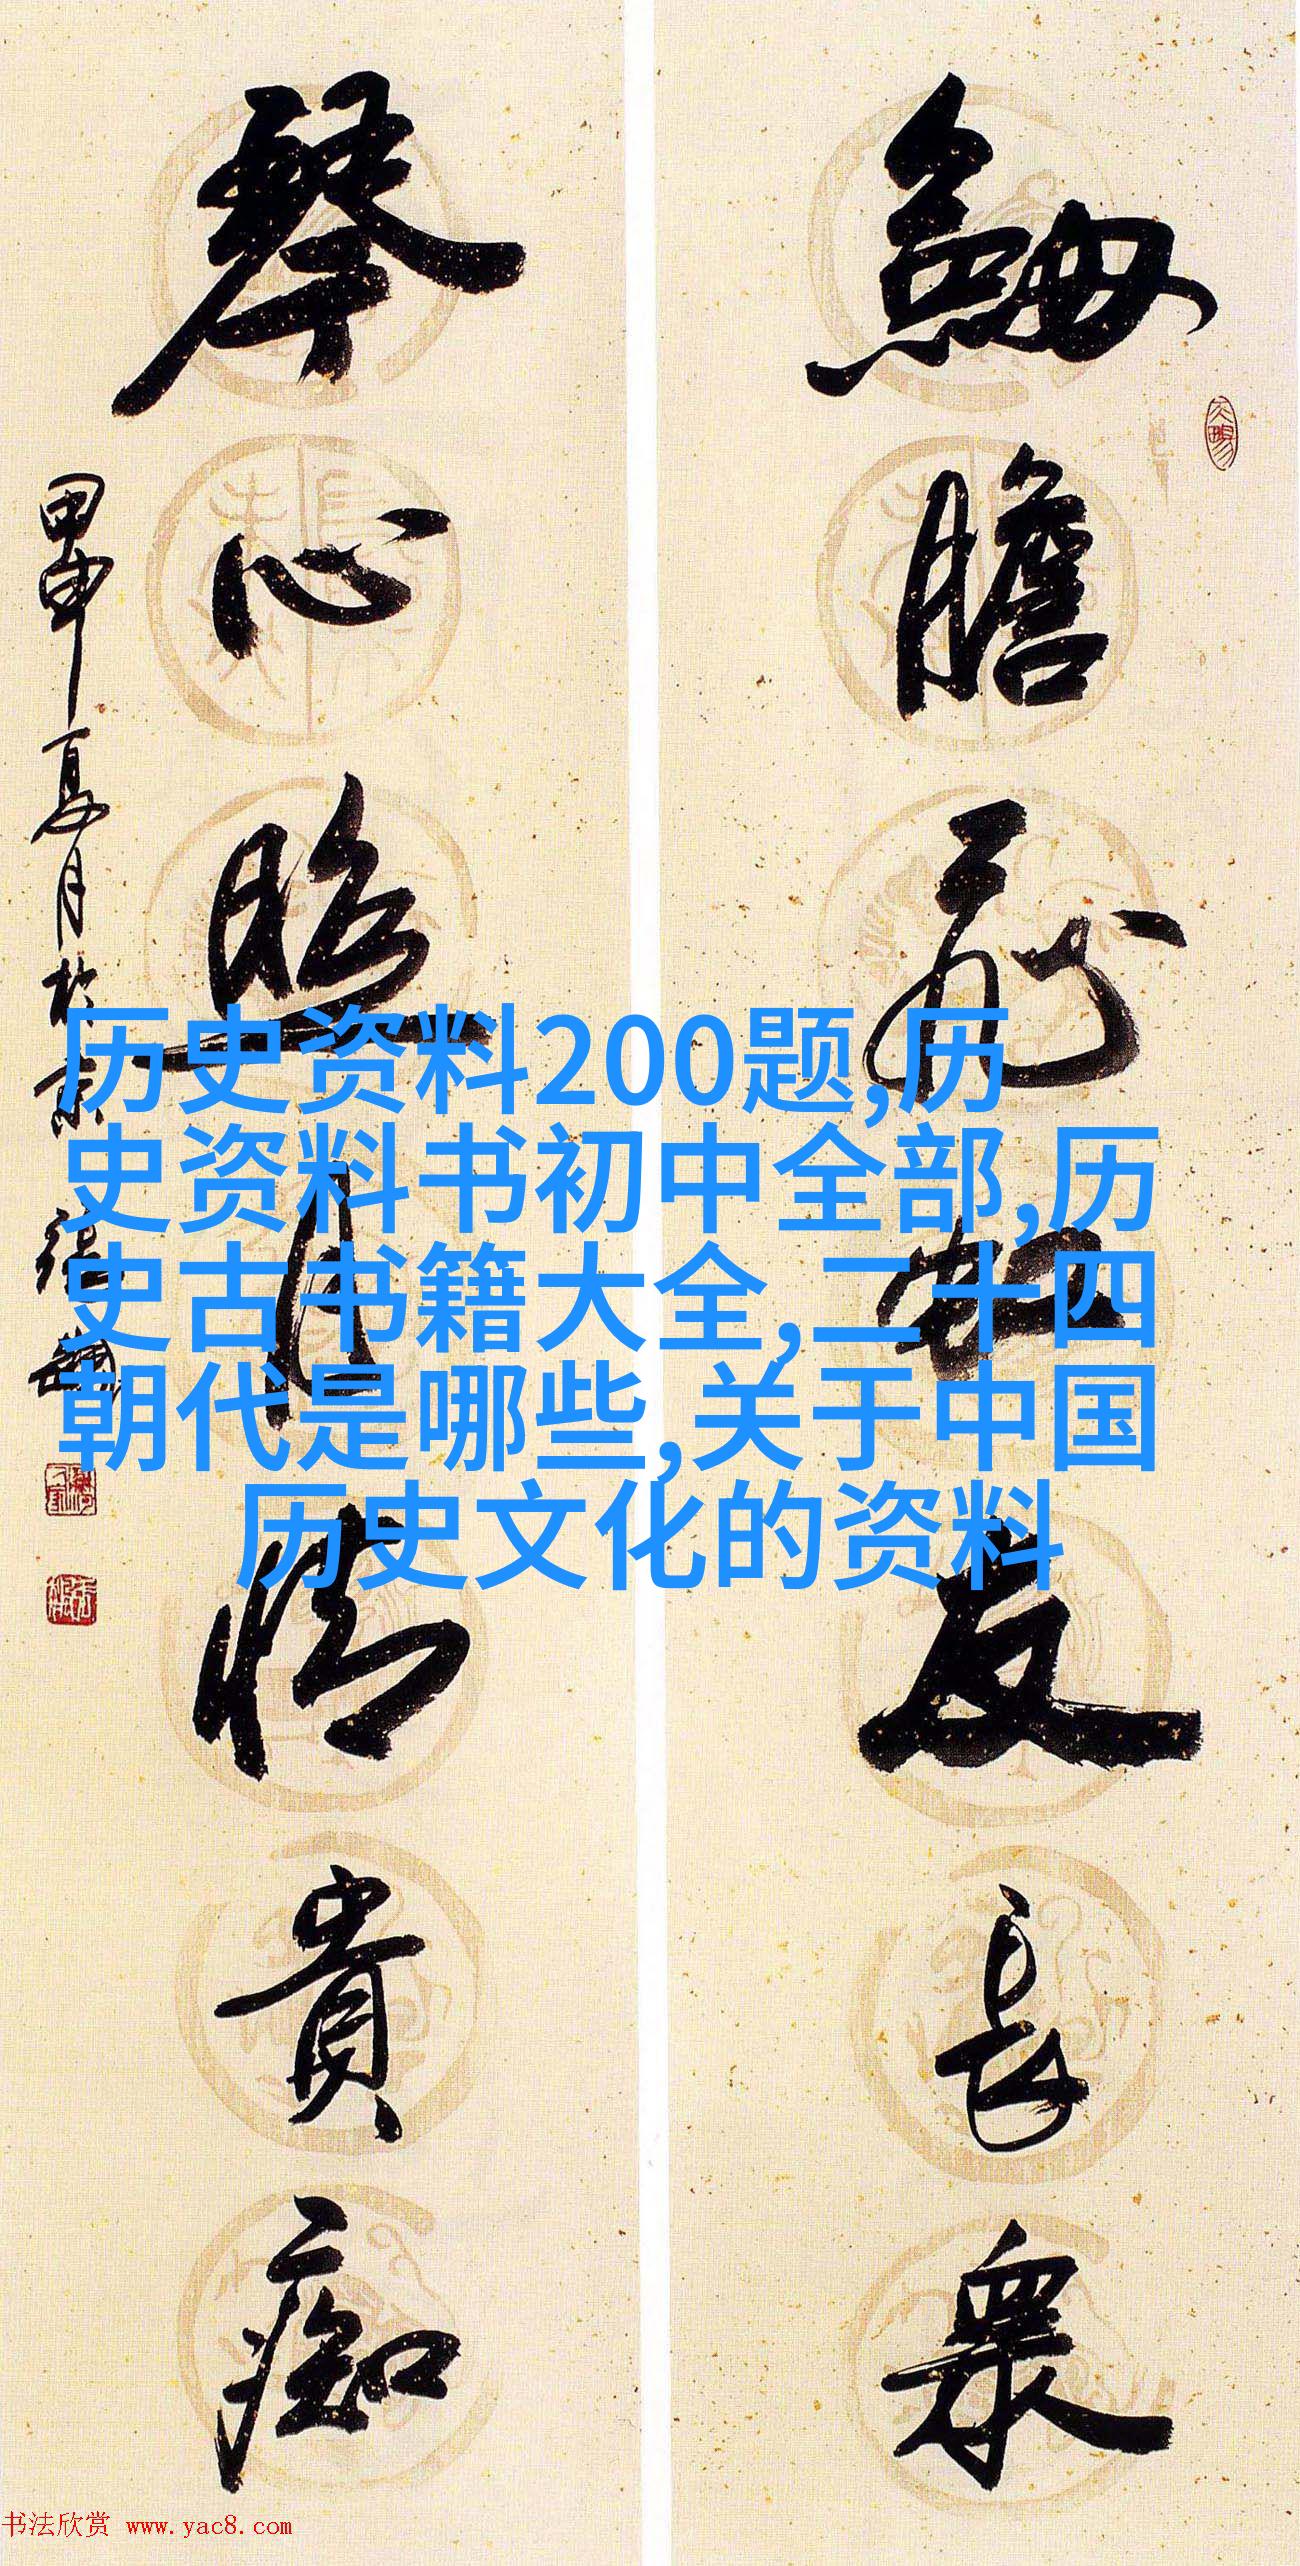 劒膽
友長衆
琴心照月情貴痴
甲申夏月於京
历史资料200题,历
史资料书初中全部,历
史古书籍大全,二十四
朝代是哪些,关于中国
历史文化的资料
书法欣赏 www.yac8.com